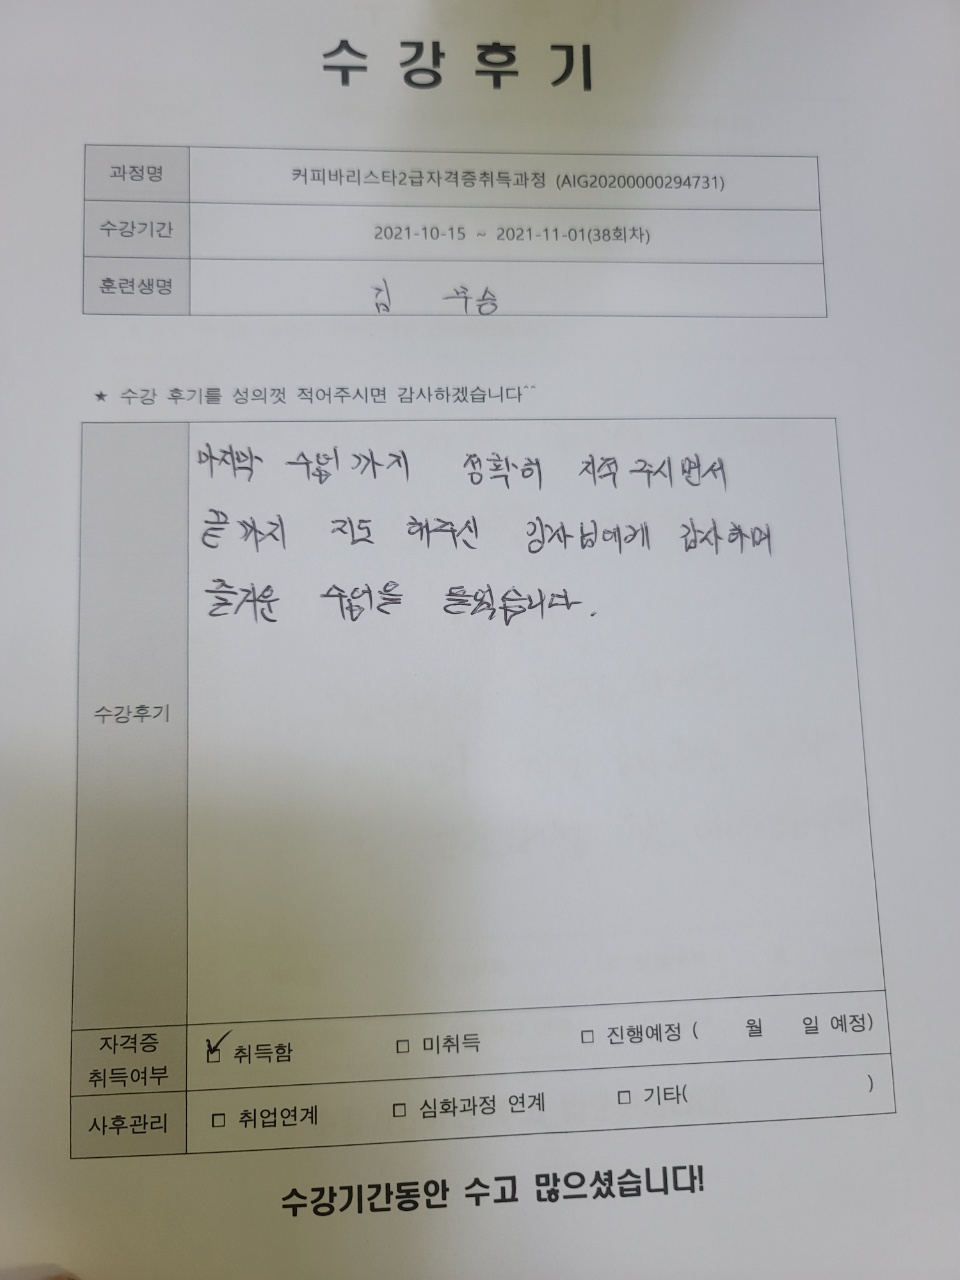 수강후기
과정명 커피바리스타2급자격증취득과정 (AIG20200000294731)
수강기간 2021-10-15 ~ 2021-11-01(38회차)
훈련생명 김 무승
★ 수강 후기를 성의껏 적어주시면 감사하겠습니다^^
수강후기
마지막 수업까지 정확히 지적 주시면서
끝까지 지도 해주신 강사님에게 감사하며
즐거운 수업을 들었습니다.
자격증 취득여부 ☑ 취득함 □ 미취득 □ 진행예정 ( 월 일 예정)
사후관리 □ 취업연계 □ 심화과정 연계 □ 기타( )
수강기간동안 수고 많으셨습니다!